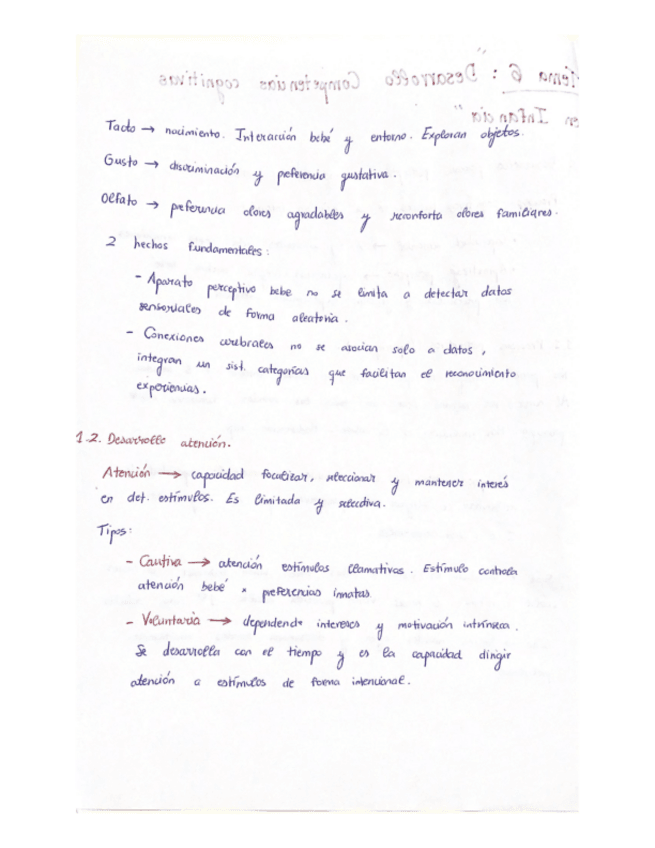 "Tema 6: Desarrollo Competencias cognitivas
en Infancia"
Tacto → nacimiento. Interacción bebé y entorno. Exploran objetos.
Gusto → discriminación y preferencia gustativa.
Olfato → preferencia olores agradables y reconforta olores familiares.
2 hechos fundamentales:
- Aparato perceptivo bebe no se limita a detectar datos
sensoriales de forma aleatoria.
- Conexiones cerebrales no se asocian solo a datos,
integran un sist. categorías que facilitan el reconocimiento
experiencias.
1.2. Desarrollo atención.
Atención → capacidad focalizar, seleccionar y mantener interés
en det. estímulos. Es limitada y selectiva.
Tipos:
- Cautiva → atención estímulos llamativos. Estímulo controla
atención bebé x preferencias innatas.
- Voluntaria → depende intereses y motivación intrínseca.
Se desarrolla con el tiempo y es la capacidad dirigir
atención a estímulos de forma intencional.